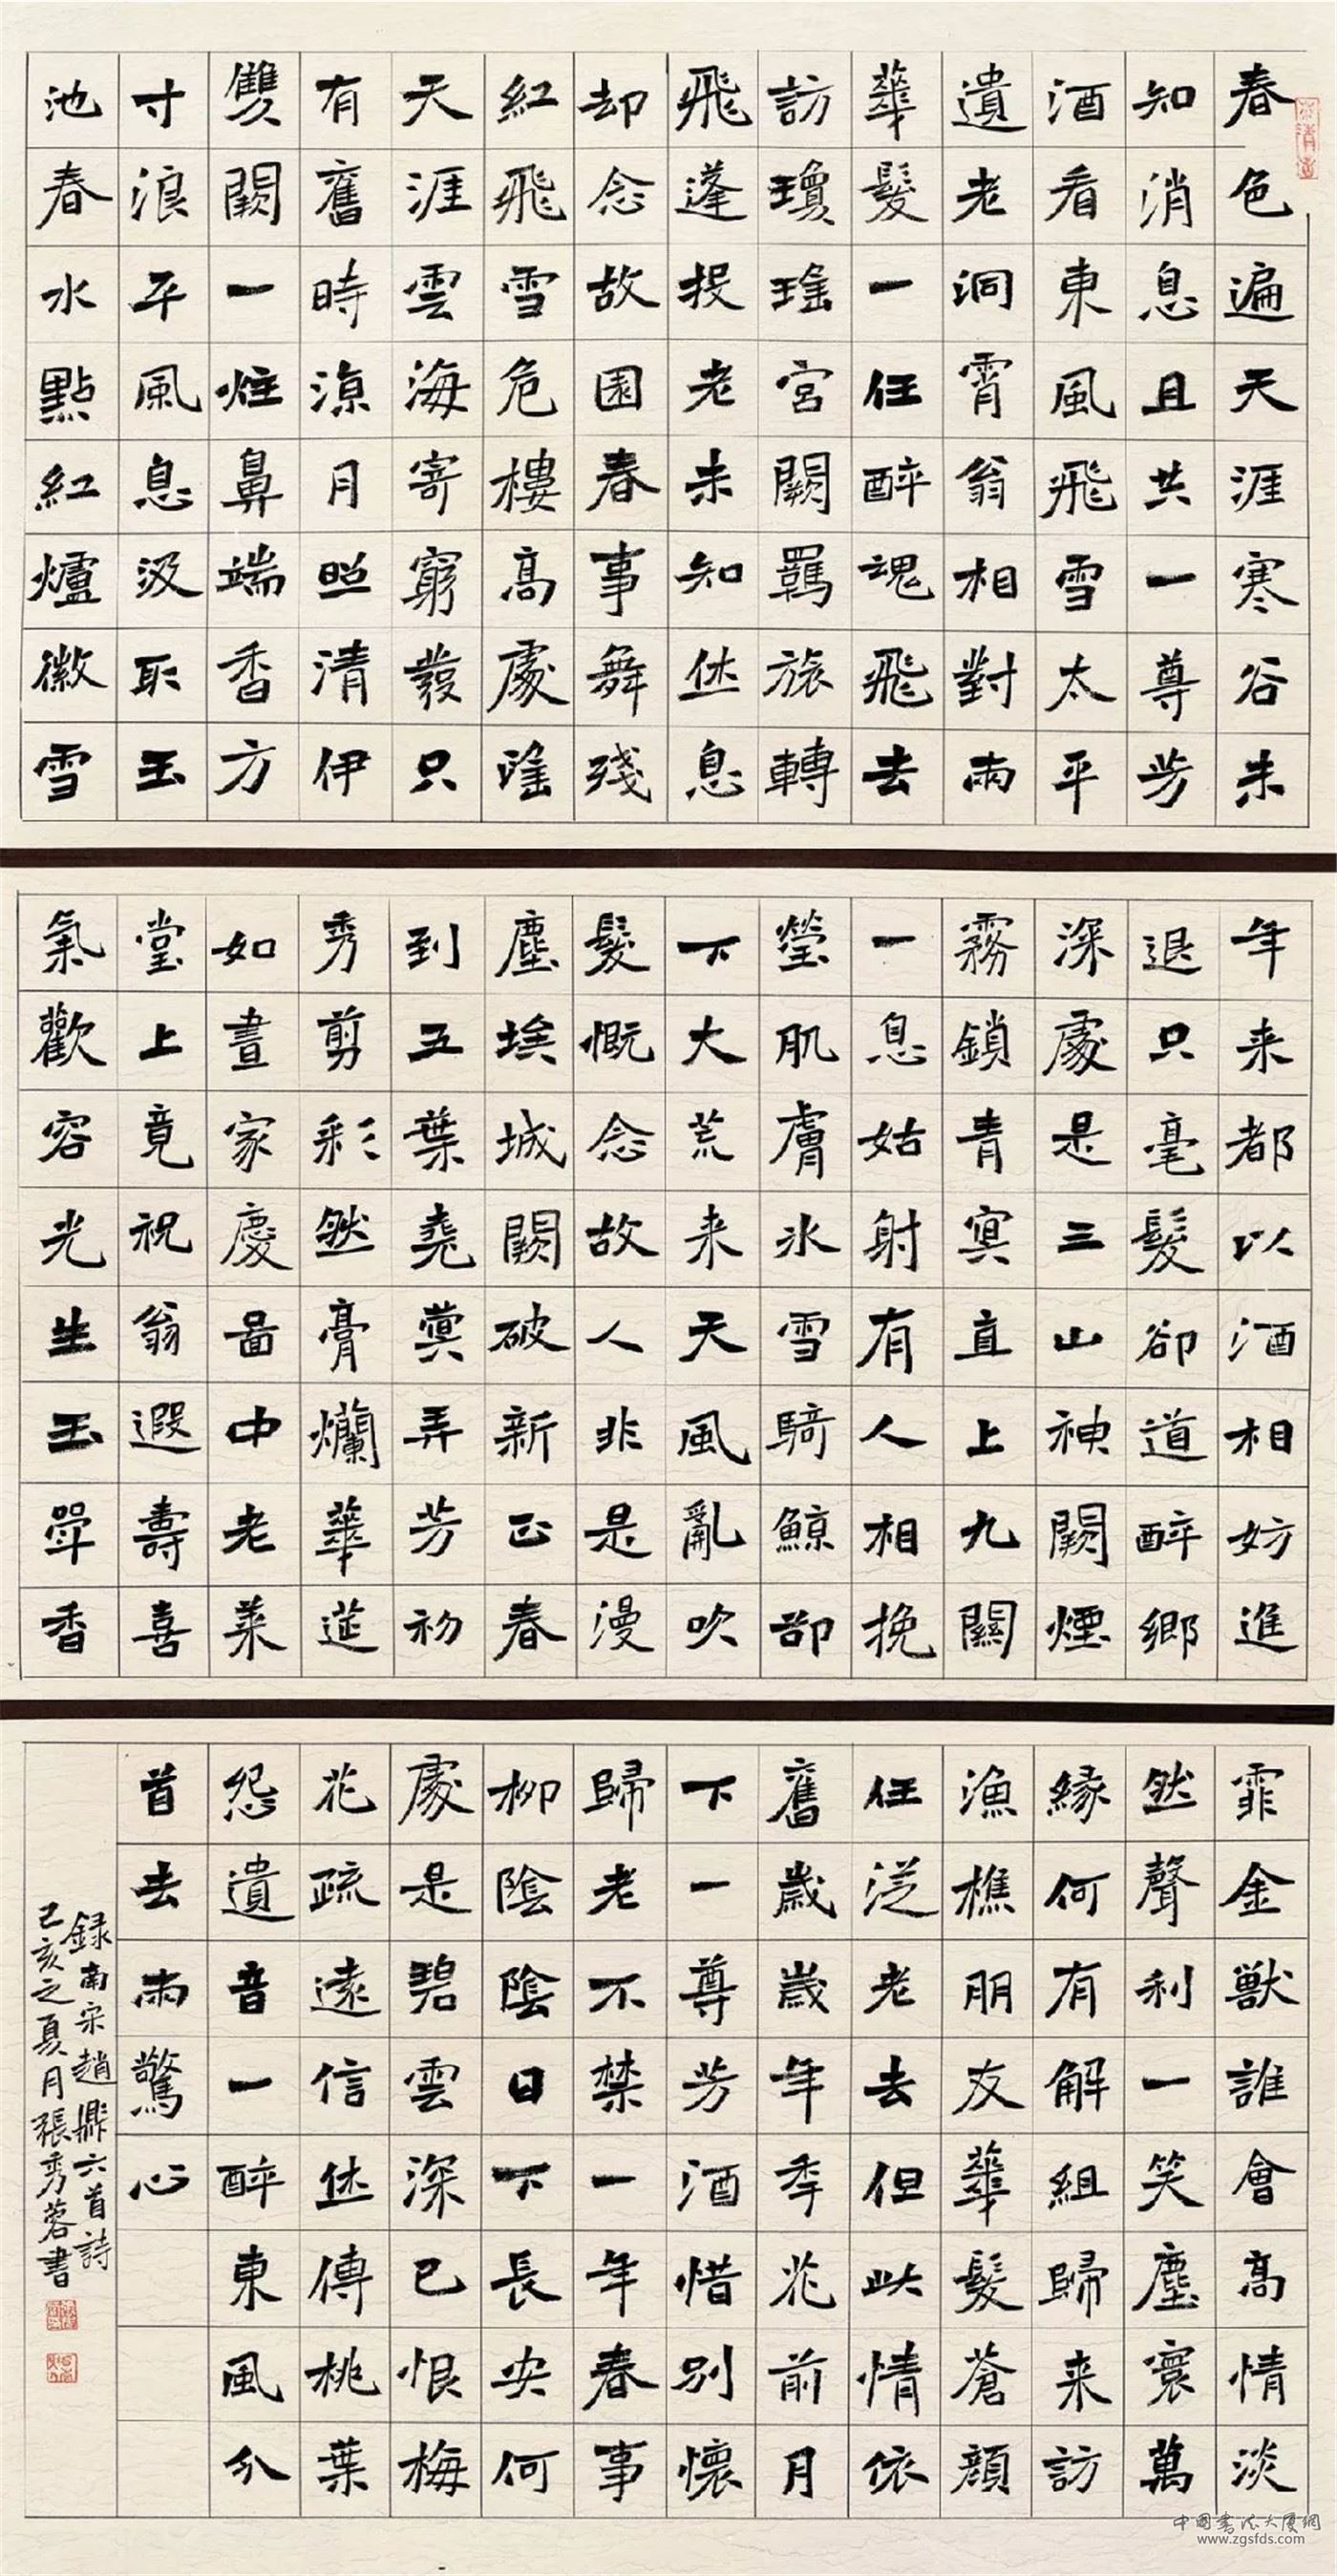 春色遍天涯寒谷未
知消息且共一尊芳
酒看東風飛雪太平
遺老洞霄翁相對兩
華髮一任醉魂飛去
訪瓊瑤宮闕羈旅轉
飛蓬投老未知休息
却念故園春事舞殘
紅飛雪危樓高處望
天涯雲海寄窮發只
有舊時涼月照清伊
雙闕一炷鼻端香方
寸浪平風息汲取玉
池春水點紅爐微雪
年来都以酒相妨進
退只毫髮卻道醉鄉
深處是三山神闕煙
霧鎖青冥直上九關
一息姑射有人相挽
瑩肌膚冰雪騎鯨卻
下大荒来天風亂吹
髮慨念故人非是漫
塵埃城闕破新正春
到五葉堯蓂弄芳初
秀剪彩然膏爛華筵
如晝家慶圖中老萊
堂上竟祝翁遐壽喜
氣歡容光生玉斝香
霏金獸誰會高情淡
然聲利一笑塵寰萬
緣何有解組歸来訪
漁樵朋友華髮蒼顏
任從老去但此情依
舊歲歲年年花前月
下一尊芳酒惜別懷
歸老不禁一年春事
柳陰陰日下長安何
處是碧雲深已恨梅
花疏遠信休傳桃葉
怨遺音一醉東風分
首去兩驚心
録南宋趙鼎六首詩
己亥之夏月張秀蓉書
中國書法大廈網
www.zgsfds.com